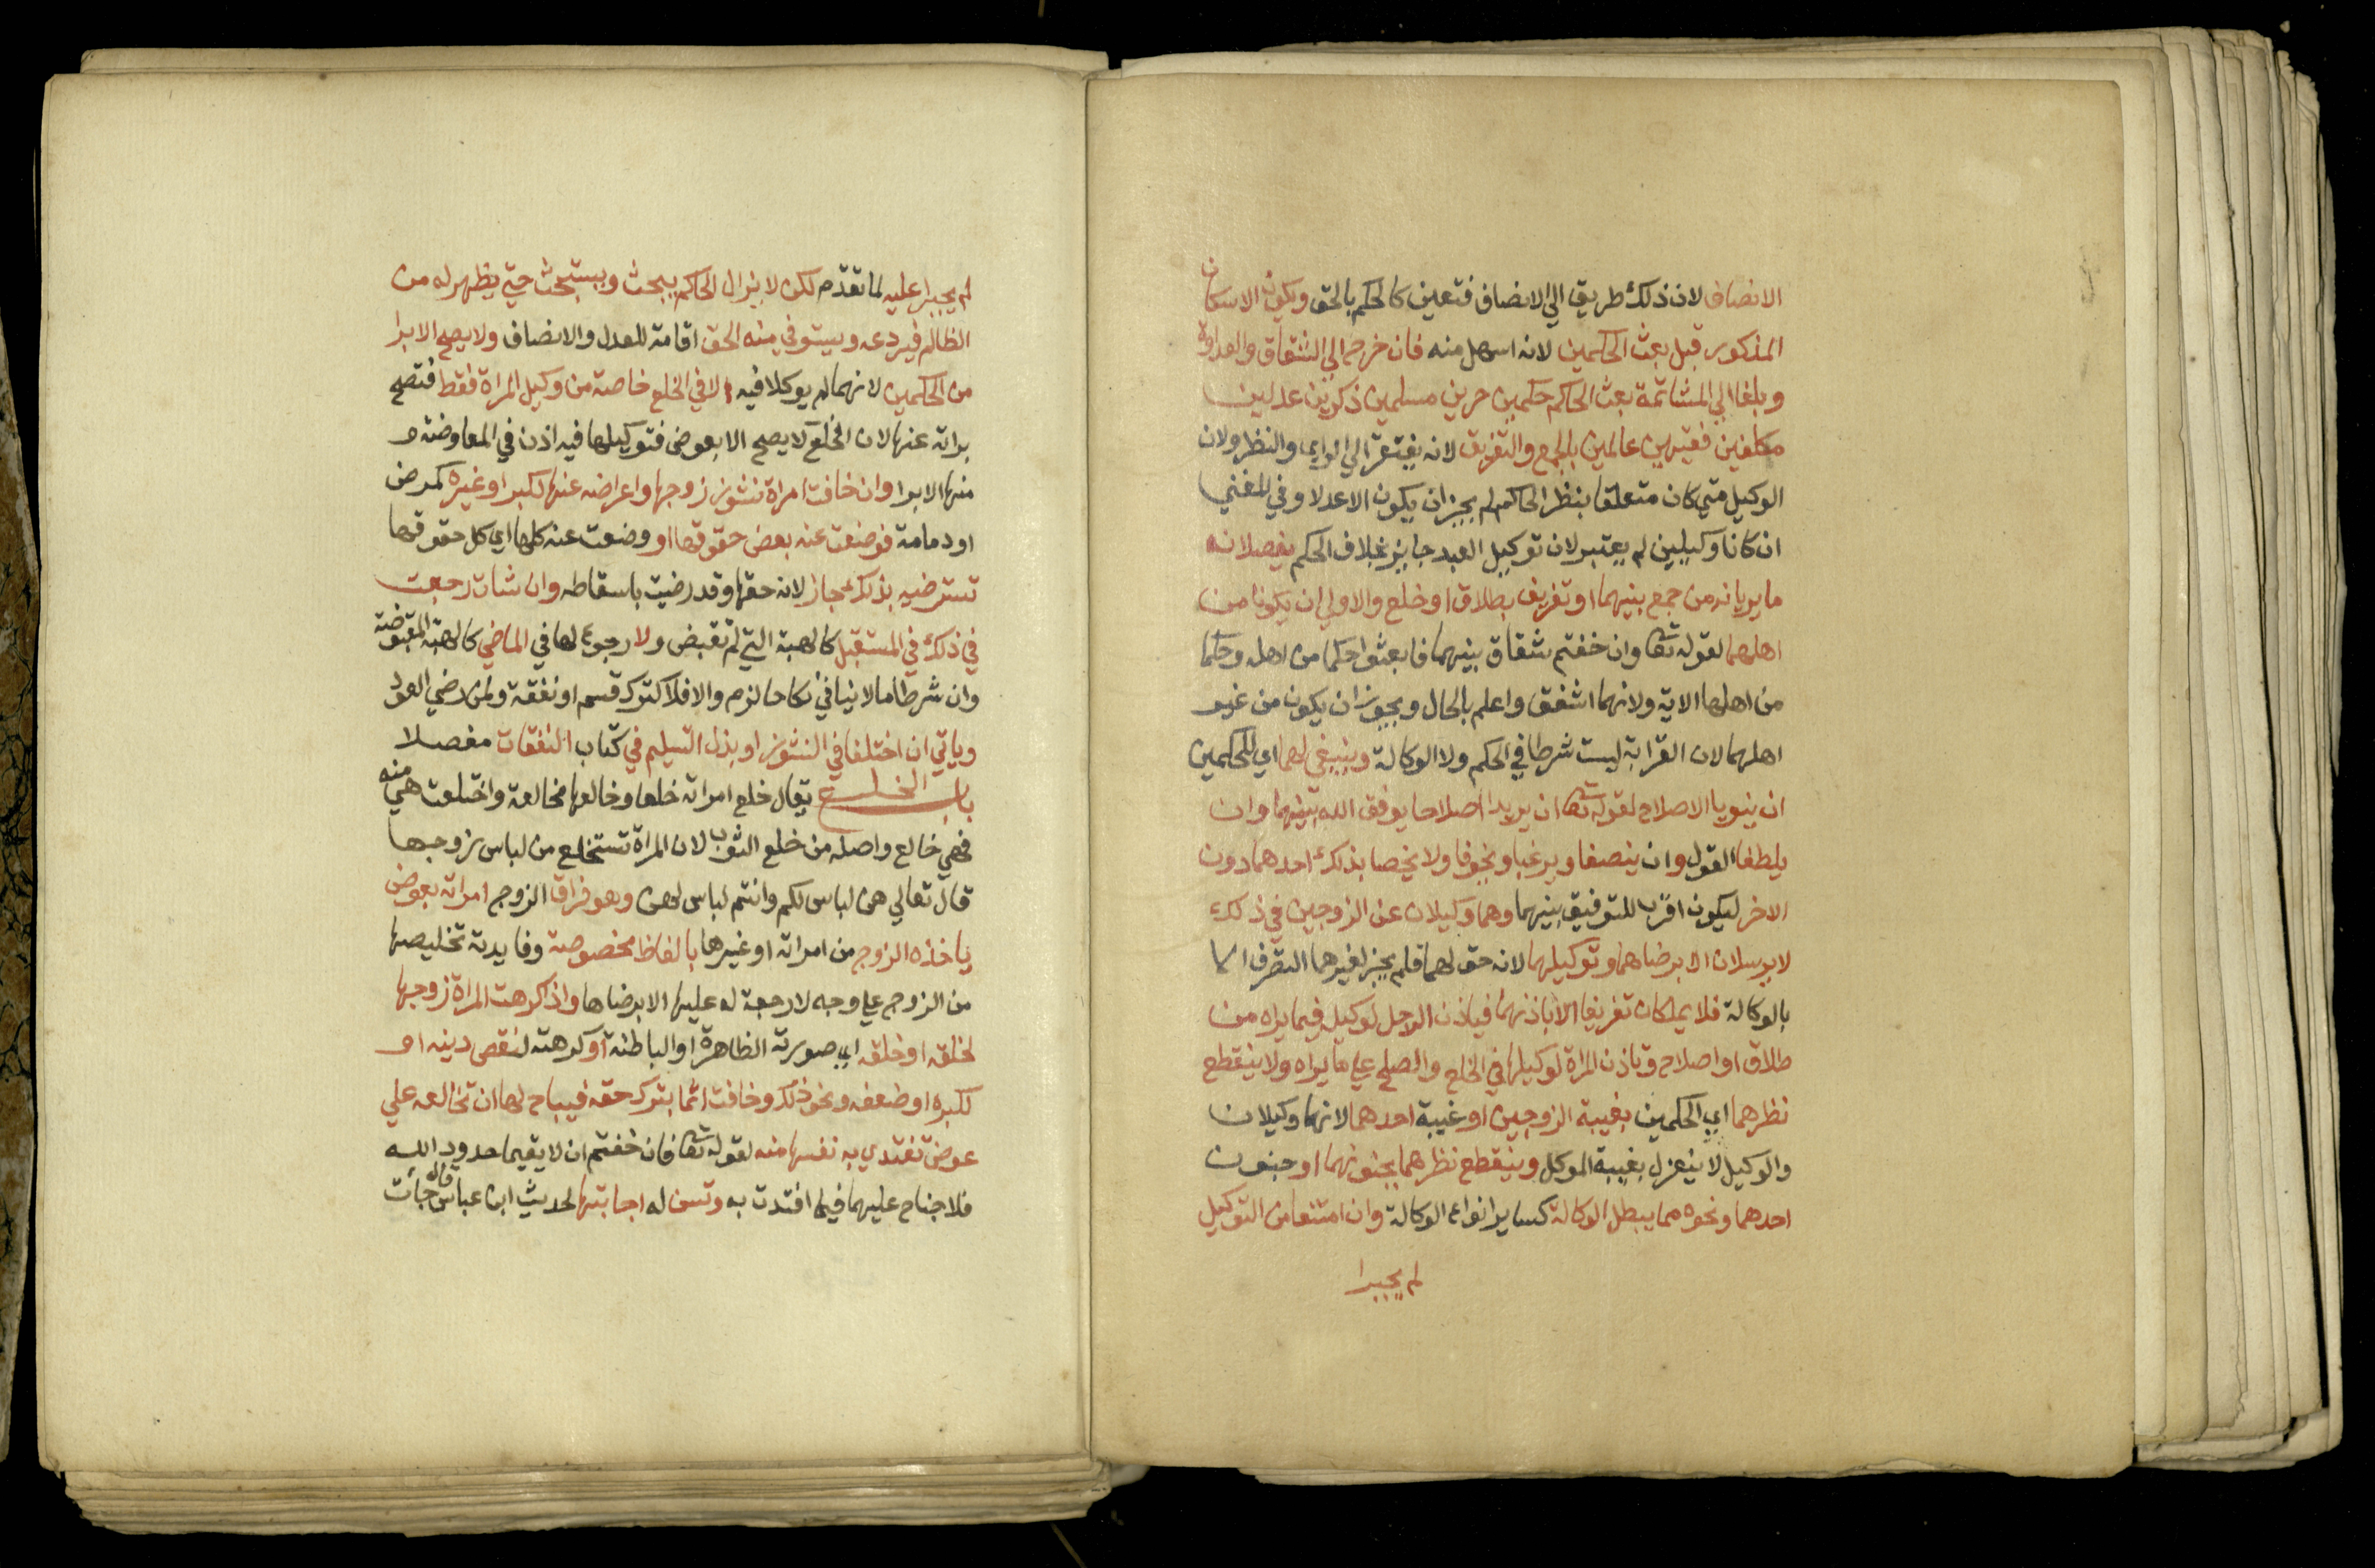 الانصاف لان ذلك طريق الي الانصاف فتعين كالحكم بالحق ويكون الاسكان
المذكور قبل بعث الحكمين لانه اسهل منه فان خرجا الي الشقاق والعداوة
وبلغا الي المشاتمة بعث الحاكم حكمين حرين مسلمين ذكرين عدلين
مكلفين فقيهين عالمين بالجمع والتفريق لانه يفتقر الي الراي والنظر ولان
الوكيل متي كان متعلقا بنظر الحاكم لم يجز ان يكون الا عدلا وفي المغني
ان كانا وكيلين لم يعتبر لان توكيل العبد جايز بخلاف الحكم يفعلانه
ما يريانه من جمع بينهما او تفريق بطلاق او خلع والاولي ان يكونا من
اهلهما لقوله تعا وان خفتم شقاق بينهما فابعثوا حكما من اهله وحكما
من اهلها الاية ولانهما اشفق واعلم بالحال ويجوز ان يكون من غير
اهلهما لان القرابة ليست شرطا في الحكم ولا الوكالة وينبغي لهما اي للحكمين
ان ينويا الاصلاح لقوله تعا ان يريدا اصلاحا يوفق الله بينهما وان
يلطفا القول وان ينصفا ويرغبا ويخوفا ولا يخصا بذلك احدهما دون
الاخر ليكون اقرب للتوفيق بينهما وهما وكيلان عن الزوجين في ذلك
لا يرسلان الا برضاهما وتوكيلهما لانه حق لهما فلم يجز لغيرهما التصرف الا
بالوكالة فلا يملكان تفريقا الا باذنهما فياذن الرجل لوكيله فيما يراه من
طلاق او اصلاح وتاذن المراة لوكيلها في الخلع والصلح علي ما يراه ولا ينقطع
نظرهما اي الحكمين بغيبة الزوجين او غيبة احدهما لانهما وكيلان
والوكيل لا ينعزل بغيبة الموكل وينقطع نظرهما بجنونهما او جنون
احدهما ونحوه مما يبطل الوكالة كساير انواع الوكالة وان امتنعا من التوكيل
لم يجبرا
لم يجبرا عليه لما تقدم لكن لا يزال الحاكم يبحث ويستبحث حتي يظهر له من
الظالم فيردعه ويستوفي منه الحق اقامة للعدل والانصاف ولا يصح الابرا
من الحكمين لانهما لم يوكلا فيه الا في الخلع خاصة من وكيل المراة فقط فتصح
براته عنها لان الخلع لا يصح الا بعوض فتوكيلها فيه اذن في المعاوضة و
منها الابرا وان خافت امراة نشوز زوجها واعراضه عنها لكبر او غيره كمرض
او دمامة فوضعت عنه بعض حقوقها او وضعت عنه كلها اي كل حقوقها
تسترضيه بذلك جاز لانه حقها وقد رضيت باسقاطه وان شات رجعت
في ذلك في المستقبل كالهبة التي لم تقبض ولا رجوع لها في الماضي كالهبة المقبوضة
وان شرطا ما لا ينافي نكاحا لزم والا فلا كترك قسم او نفقة ولمن رضي العود
وياتي ان اختلفا في النشوز او بذل التسليم في كتاب النفقات مفصلا
باب الخلع يقال خلع امراته خلعا وخالعها مخالعة واختلعت هي منه
فهي خالع واصله من خلع الثوب لان المراة تستخلع من لباس زوجها
قال تعالي هن لباس لكم وانتم لباس لهن وهو فراق الزوج امراته بعوض
ياخذه الزوج من امراته او غيرها بالفاظ مخصوصة وفايدته تخليصها
من الزوج علي وجه لا رجعة له عليها الا برضاها واذا كرهت المراة زوجها
لخلقه او خلقه اي صورته الظاهرة او الباطنة او كرهته لنقص دينه او
لكبره او ضعفه ونحو ذلك وخافت اثما بترك حقه فيباح لها ان تخالعه علي
عوض تفتدي به نفسها منه لقوله تعا فان خفتم ان لا يقيما حدود الله
فلا جناح عليهما فيما افتدت به وتسن له اجابتها لحديث ابن عباس قال جات